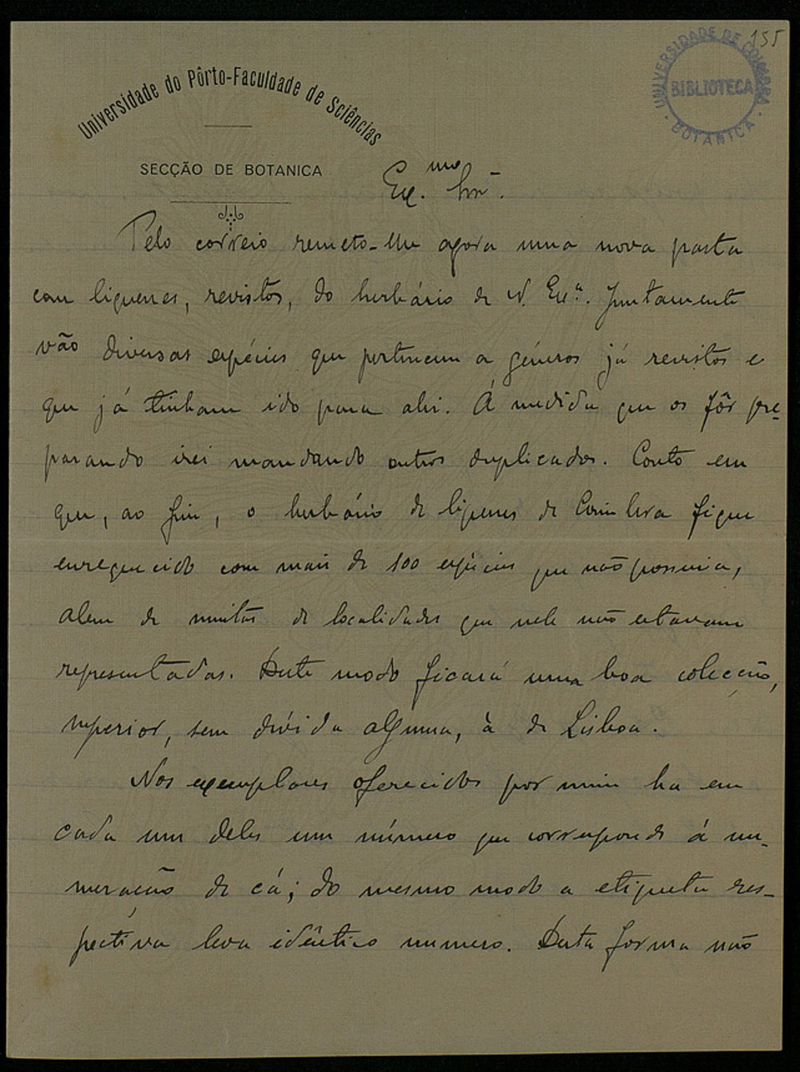 155
UNIVERSIDADE DE COIMBRA
BIBLIOTECA
BOTANICA
Universidade do Pôrto-Faculdade de Sciências
SECÇÃO DE BOTANICA
Ex.mo Snr.
Pelo correio remeto-lhe agora uma nova pasta
com liquenes, revistos, do herbário de V. Ex.ª. Juntamente
vão diversas espécies que pertencem a géneros já revistos e
que já tinham ido para ahi. Á medida que os fôr pre-
parando irei mandando outros duplicados. Conto em
que, ao fim, o herbário de liquenes de Coimbra fique
enrequecido com mais de 100 espécies que não possuia,
alem de muitas de localidades que nele não estavam
representadas. Deste modo ficará uma boa colecção,
superior, sem dúvida alguma, à de Lisboa.
Nos exemplares oferecidos por mim ha em
cada um deles um número que corresponde á nu-
meração de cá; do mesmo modo a etiqueta res-
pectiva leva idêntico numero. Desta forma não